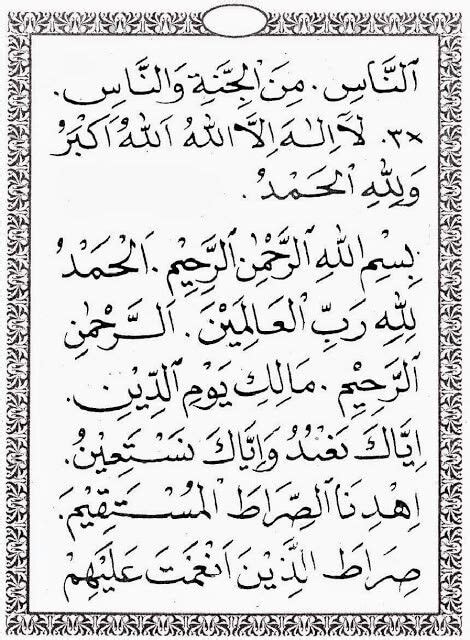 اَلنَّاسِ. مِنَ الْجِنَّةِ وَالنَّاسِ.
×٣. لَا اِلٰهَ اِلَّا اللّٰهُ اَللّٰهُ اَكْبَرُ
وَلِلّٰهِ الْحَمْدُ.
بِسْمِ اللّٰهِ الرَّحْمٰنِ الرَّحِيْمِ. اَلْحَمْدُ
لِلّٰهِ رَبِّ الْعَالَمِيْنَ. اَلرَّحْمٰنِ
الرَّحِيْمِ. مَالِكِ يَوْمِ الدِّيْنِ.
اِيَّاكَ نَعْبُدُ وَاِيَّاكَ نَسْتَعِيْنُ.
اِهْدِنَا الصِّرَاطَ الْمُسْتَقِيْمَ.
صِرَاطَ الَّذِيْنَ اَنْعَمْتَ عَلَيْهِمْ